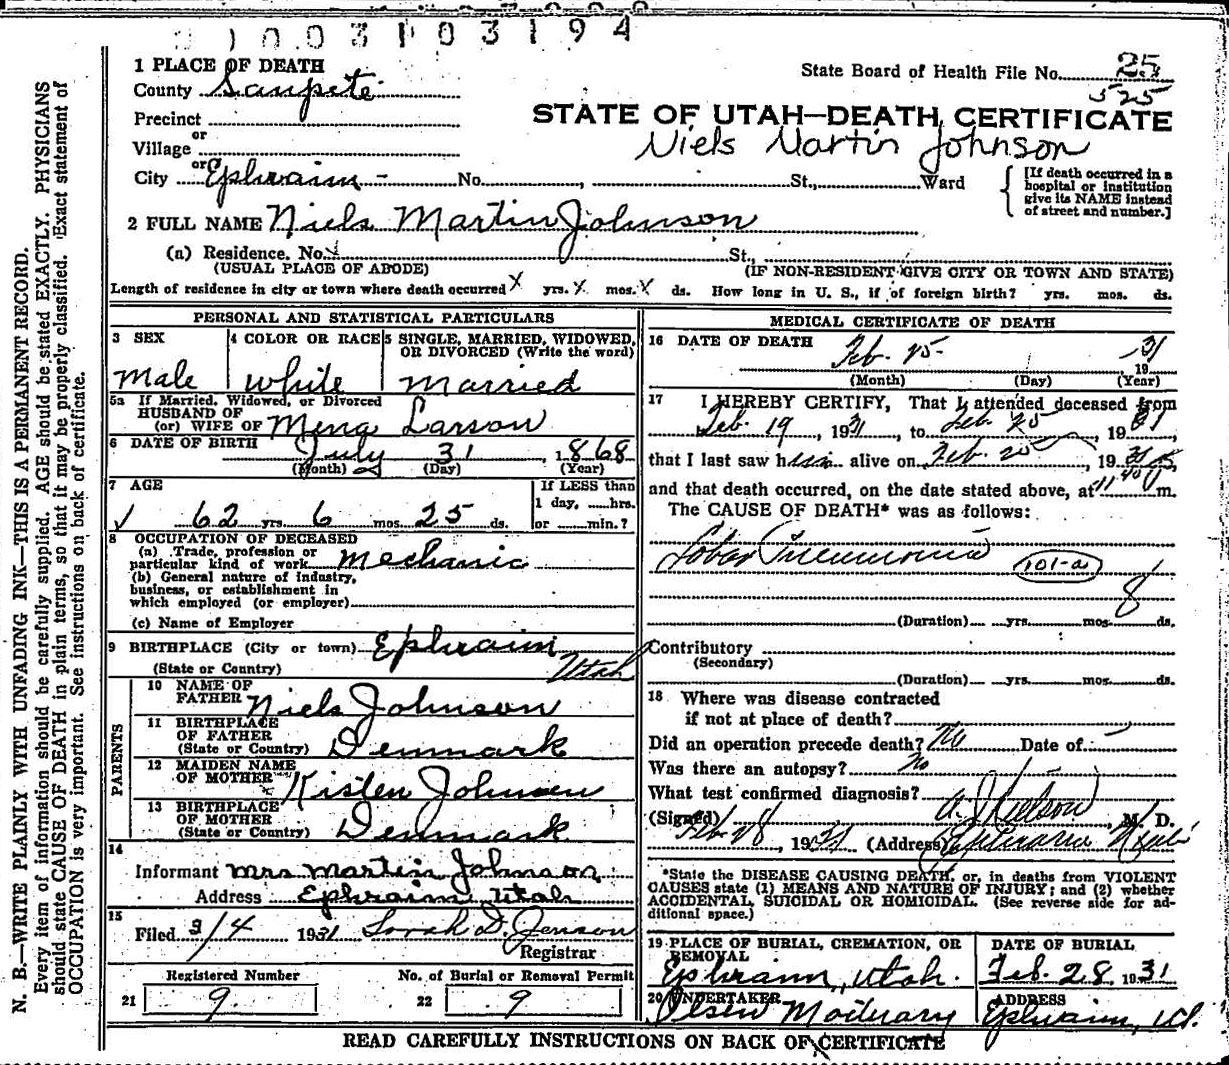 1003103194
1 PLACE OF DEATH
State Board of Health File No. 25
County Sanpete
525
STATE OF UTAH—DEATH CERTIFICATE
Precinct
or
Village
Niels Martin Johnson
or
City Ephraim - No. , St., Ward
[If death occurred in a hospital or institution give its NAME instead of street and number.]
2 FULL NAME Niels Martin Johnson
(a) Residence. No. x St.,
(USUAL PLACE OF ABODE) (IF NON-RESIDENT GIVE CITY OR TOWN AND STATE)
Length of residence in city or town where death occurred X yrs. X mos. X ds. How long in U. S., if of foreign birth? yrs. mos. ds.
PERSONAL AND STATISTICAL PARTICULARS
3 SEX
Male
4 COLOR OR RACE
White
5 SINGLE, MARRIED, WIDOWED, OR DIVORCED (Write the word)
Married
5a If Married, Widowed, or Divorced
HUSBAND OF
(or) WIFE OF Mena Larson
6 DATE OF BIRTH July 31, 1868
(Month) (Day) (Year)
7 AGE
62 yrs. 6 mos. 25 ds.
If LESS than
1 day, ......hrs.
or ......min.?
8 OCCUPATION OF DECEASED
(a) Trade, profession or
particular kind of work Mechanic
(b) General nature of industry,
business, or establishment in
which employed (or employer)
(c) Name of Employer
9 BIRTHPLACE (City or town) Ephraim
(State or Country) Utah
PARENTS
10 NAME OF
FATHER Niels Johnson
11 BIRTHPLACE
OF FATHER
(State or Country) Denmark
12 MAIDEN NAME
OF MOTHER Kisten Johnsen
13 BIRTHPLACE
OF MOTHER
(State or Country) Denmark
14
Informant Mrs Martin Johnson
Address Ephraim Utah
15
Filed 3/4 1931 Sarah D. Jenson
Registrar
Registered Number
21 9
No. of Burial or Removal Permit
22 9
MEDICAL CERTIFICATE OF DEATH
16 DATE OF DEATH Feb. 25- 1931
(Month) (Day) (Year)
17 I HEREBY CERTIFY, That I attended deceased from
Feb. 19, 1931, to Feb. 25, 1931
that I last saw him alive on Feb. 25, 1931
and that death occurred, on the date stated above, at 11 40 m.
The CAUSE OF DEATH* was as follows:
Lobar Pneumonia 101-a
8
(Duration) yrs. mos. ds.
Contributory
(Secondary)
(Duration) yrs. mos. ds.
18 Where was disease contracted
if not at place of death?
Did an operation precede death? No Date of
Was there an autopsy? No
What test confirmed diagnosis?
(Signed) A. J. Nielson, M. D.
Feb 28, 1931 (Address) Ephraim Utah
*State the DISEASE CAUSING DEATH, or, in deaths from VIOLENT
CAUSES state (1) MEANS AND NATURE OF INJURY; and (2) whether
ACCIDENTAL, SUICIDAL OR HOMICIDAL. (See reverse side for ad-
ditional space.)
19 PLACE OF BURIAL, CREMATION, OR REMOVAL
Ephraim, Utah.
DATE OF BURIAL
Feb. 28 1931
20 UNDERTAKER
Olsen Mortuary
ADDRESS
Ephraim, Ut.
READ CAREFULLY INSTRUCTIONS ON BACK OF CERTIFICATE
N. B.—WRITE PLAINLY WITH UNFADING INK—THIS IS A PERMANENT RECORD.
Every item of information should be carefully supplied. AGE should be stated EXACTLY. PHYSICIANS
should state CAUSE OF DEATH in plain terms, so that it may be properly classified. Exact statement of
OCCUPATION is very important. See instructions on back of certificate.